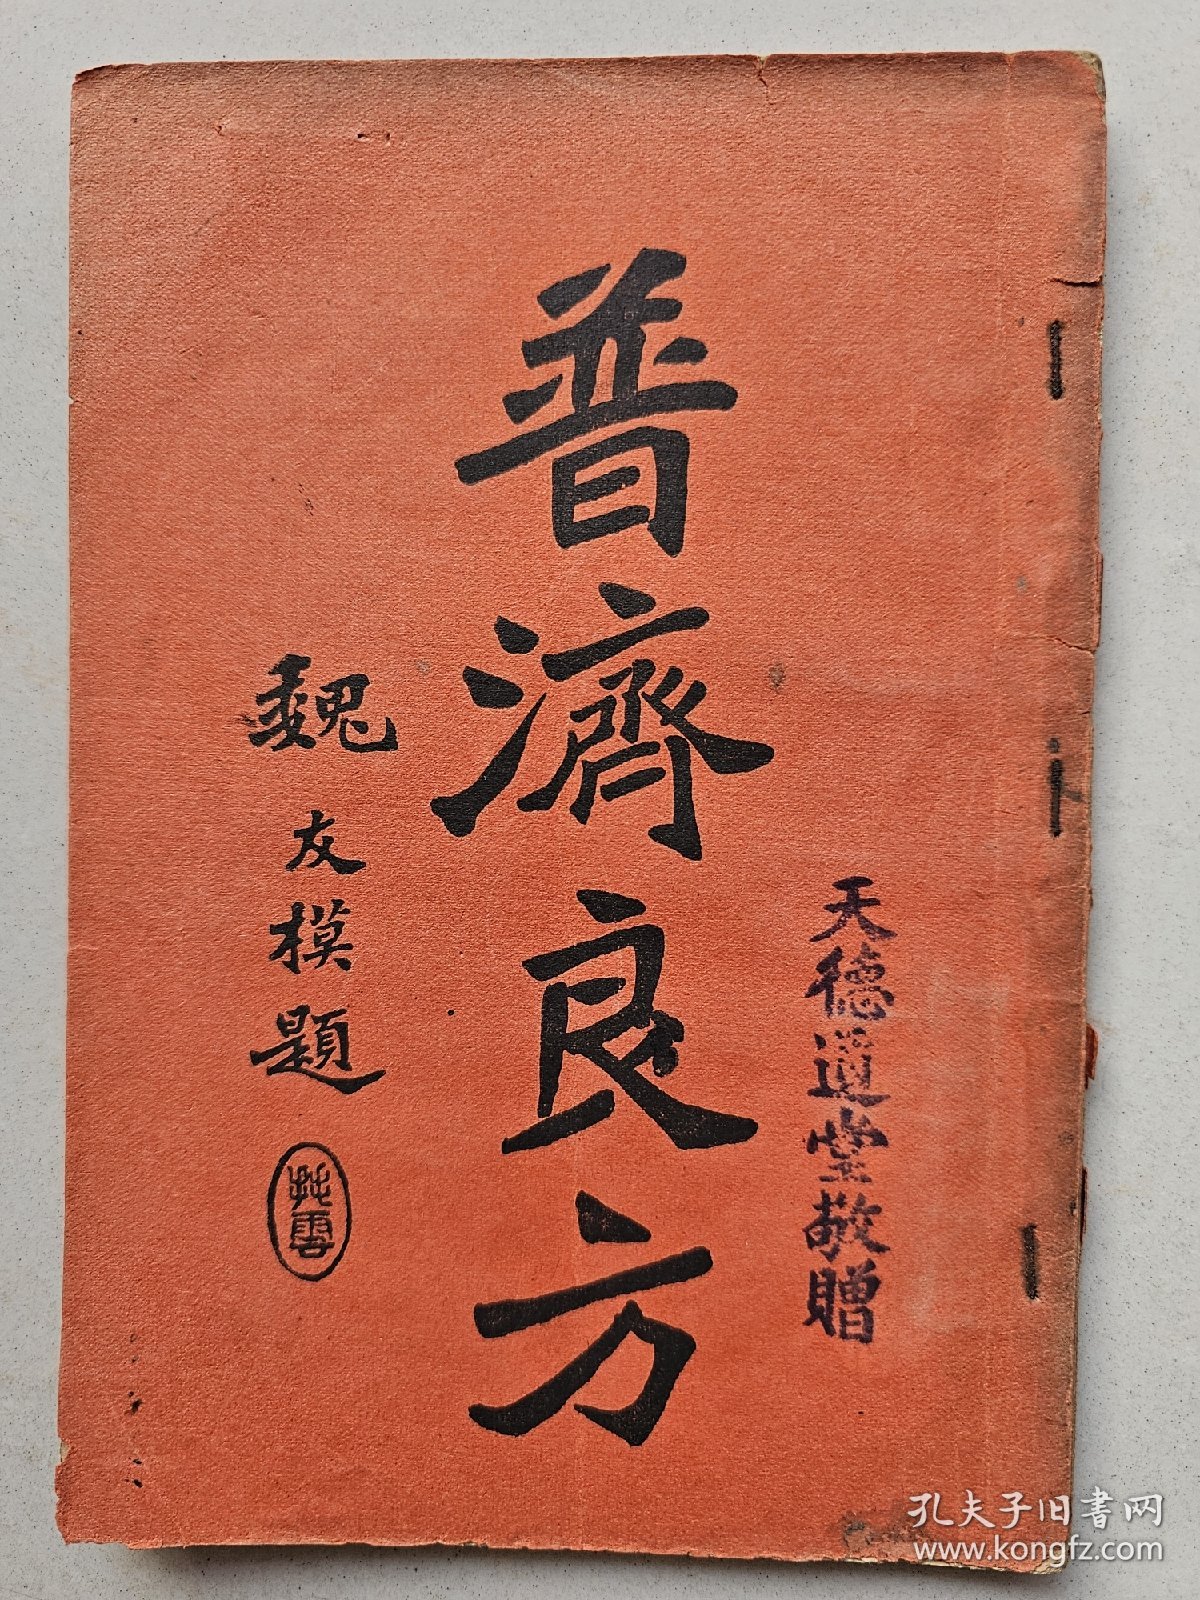 天德道堂敬贈
普濟良方
魏友模題
孔夫子旧書网
www.kongfz.com